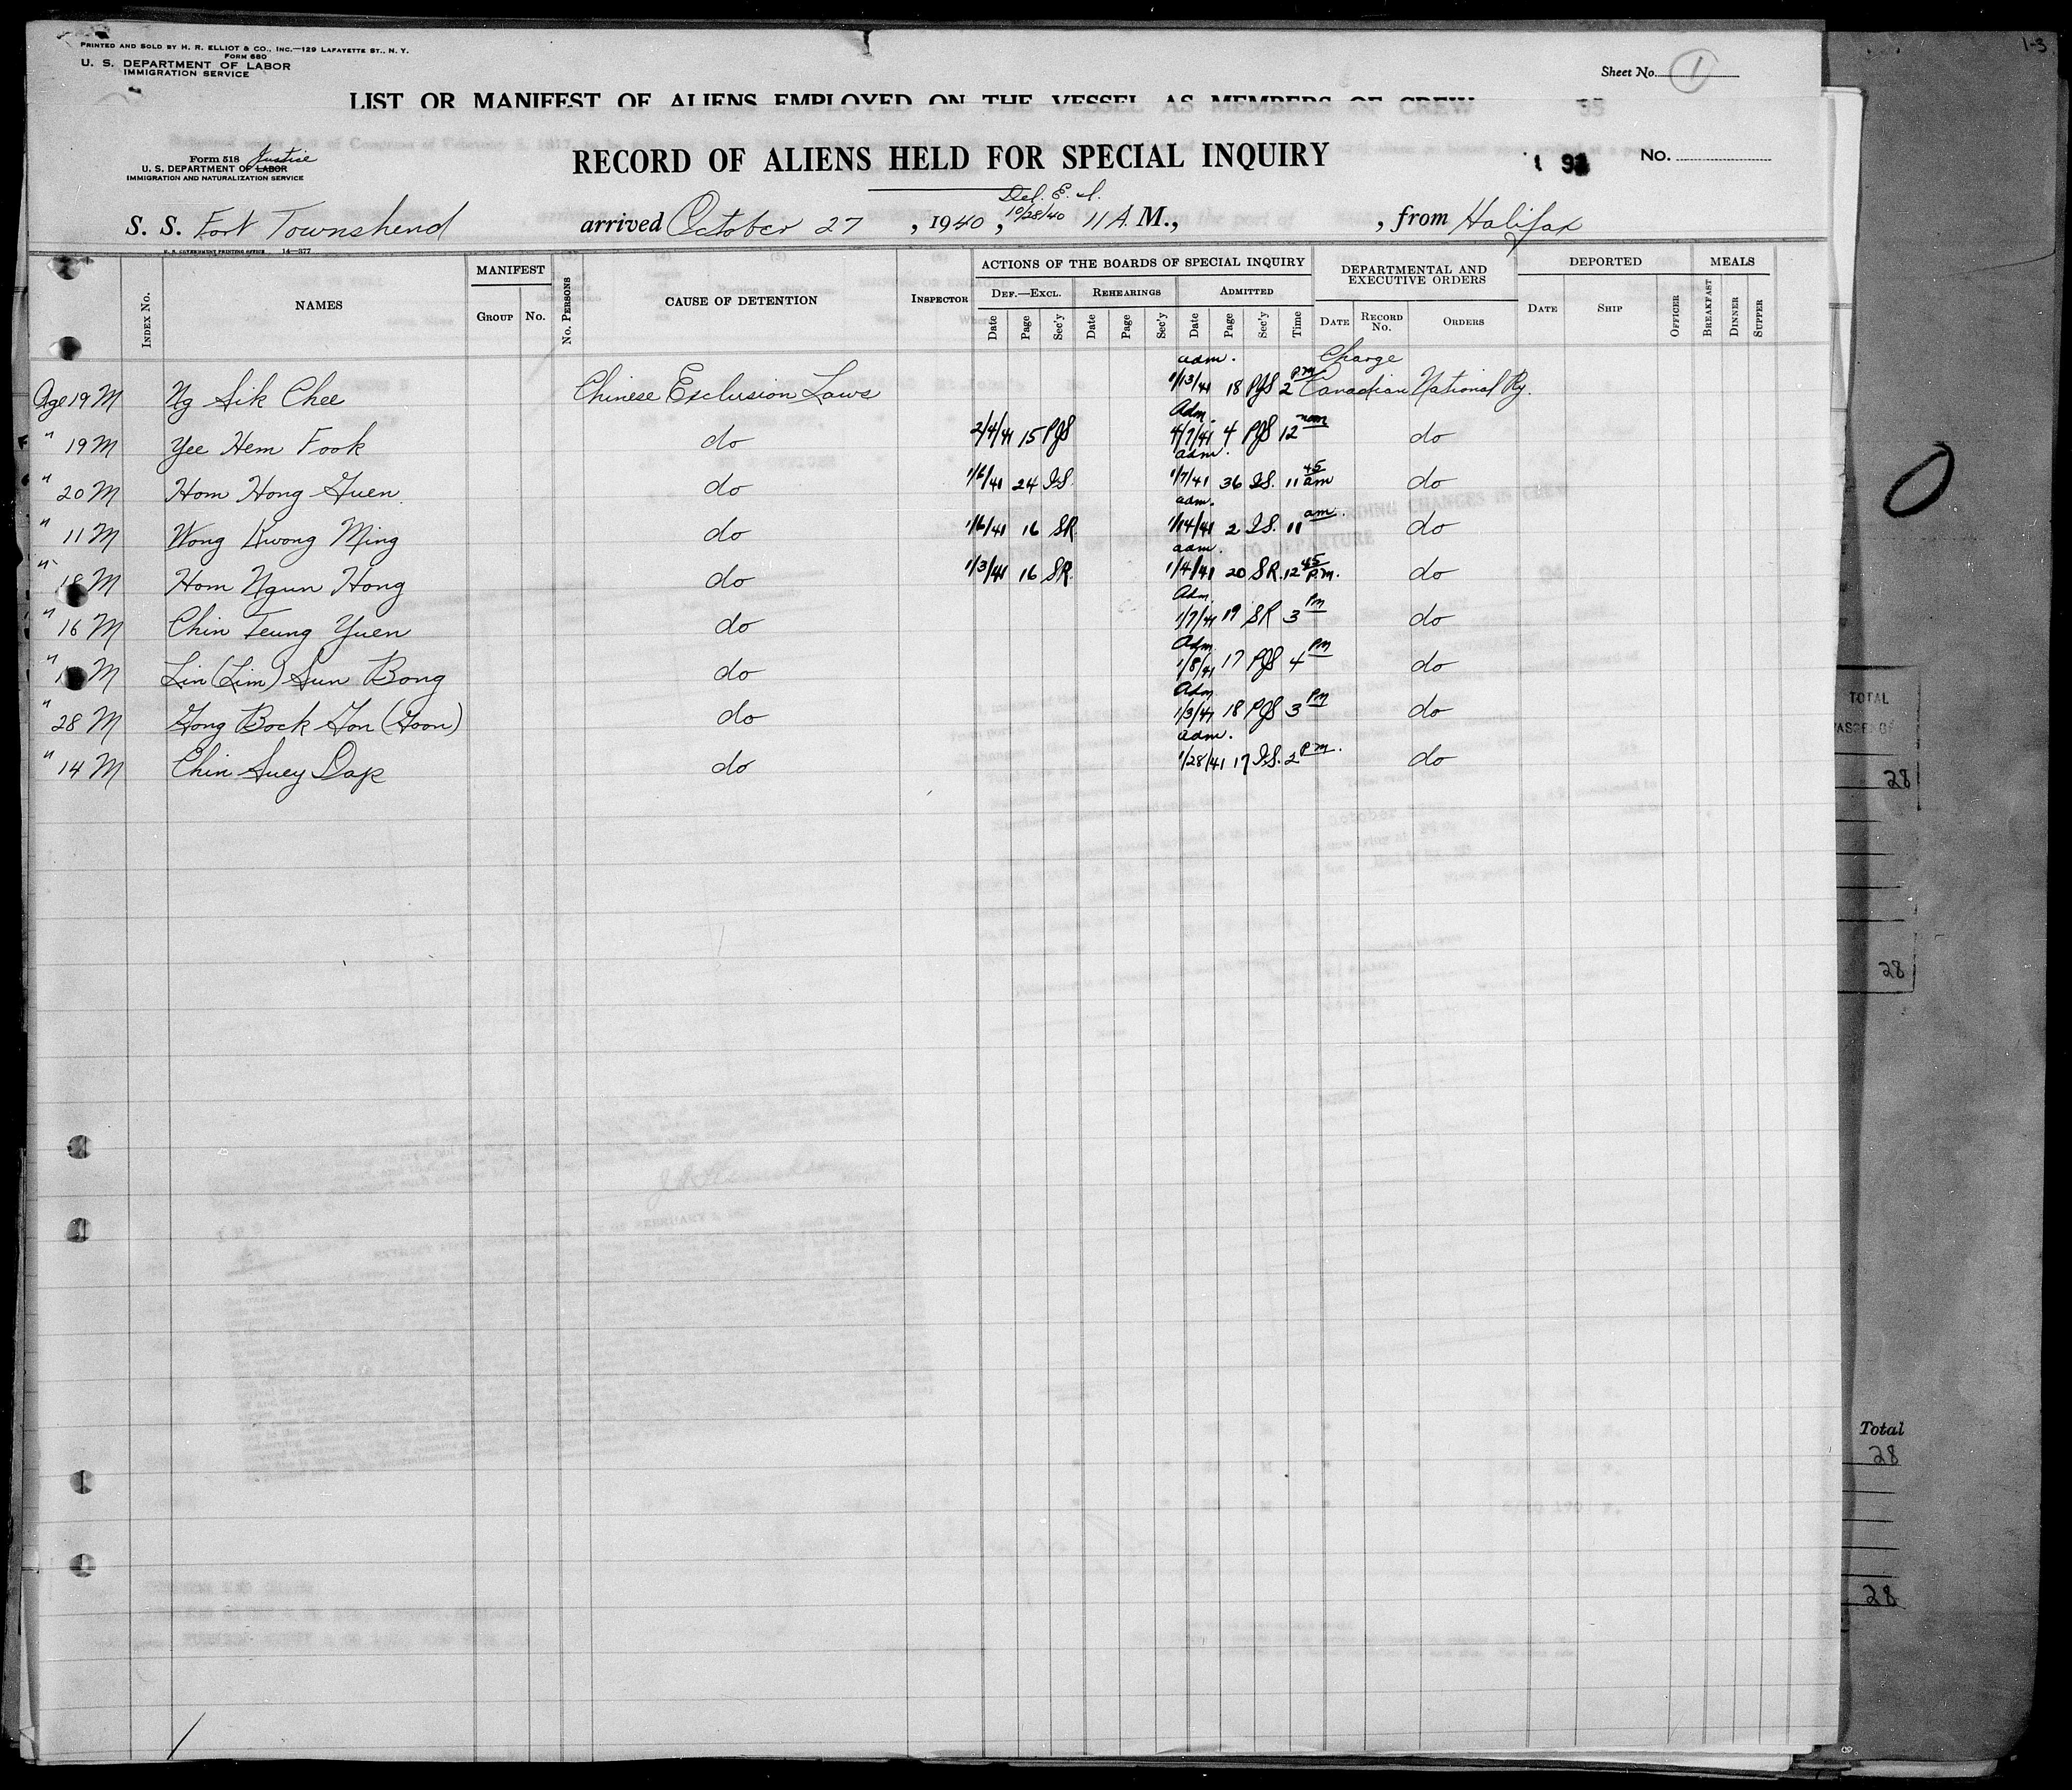 PRINTED AND SOLD BY H. R. ELLIOT & CO., INC.—129 LAFAYETTE ST., N. Y.
FORM 680
U. S. DEPARTMENT OF LABOR
IMMIGRATION SERVICE
Sheet No. 1
1-3
LIST OR MANIFEST OF ALIENS EMPLOYED ON THE VESSEL AS MEMBERS OF CREW
Form 518 Justice
U. S. DEPARTMENT OF LABOR
IMMIGRATION AND NATURALIZATION SERVICE
RECORD OF ALIENS HELD FOR SPECIAL INQUIRY
No.
Del. E. I.
S. S. Fort Townshend arrived October 27, 1940, 10/28/40 11 A. M., , from Halifax
U. S. GOVERNMENT PRINTING OFFICE 14—377
INDEX No. NAMES MANIFEST GROUP No. No. PERSONS CAUSE OF DETENTION INSPECTOR ACTIONS OF THE BOARDS OF SPECIAL INQUIRY DEPARTMENTAL AND EXECUTIVE ORDERS DEPORTED MEALS
DEF.—EXCL. REHEARINGS ADMITTED
Date Page Sec'y Date Page Sec'y Date Page Sec'y Time DATE RECORD No. ORDERS DATE SHIP OFFICER BREAKFAST DINNER SUPPER
adm. Charge
Age 19 M Ng Sik Chee Chinese Exclusion Laws 1/13/41 18 PJS 2 pm Canadian National Ry.
Adm.
" 19 M Yee Hem Fook do 2/4/41 15 PJS 4/7/41 4 PJS 12 noon do
adm.
" 20 M Hom Hong Guen do 1/6/41 24 IS. 1/7/41 36 IS. 11 45 am do
adm.
" 11 M Wong Kwong Ming do 1/6/41 16 SR 1/14/41 2 IS. 11 am. do
adm.
" 18 M Hom Ngun Hong do 1/3/41 16 SR. 1/4/41 20 SR. 12 45 P.M. do
Adm.
" 16 M Chin Teung Yuen do 1/7/41 19 SR 3 PM do
Adm.
" M Lin (Lim) Sun Bong do 1/8/41 17 PJS 4 PM do
Adm.
" 28 M Gong Bock Gon (Goon) do 1/3/41 18 PJS 3 PM do
adm.
" 14 M Chin Suey Dap do 1/28/41 17 I.S. 2 P.M. do
TOTAL
28
28
Total
28
28